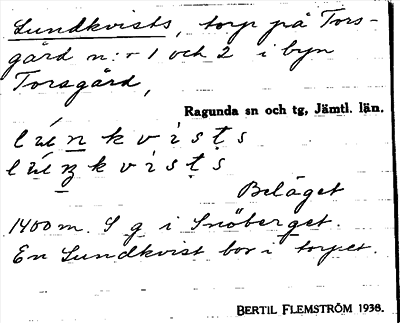 Lundkvists, torp på Tors-
gård n:r 1 och 2 i byn
Torsgård,
Ragunda sn och tg, Jämtl. län.
kvists
kvists
Beläget
1400 m. S g i Snöberget.
En Lundkvist bor i torpet.
BERTIL FLEMSTRÖM 1938.